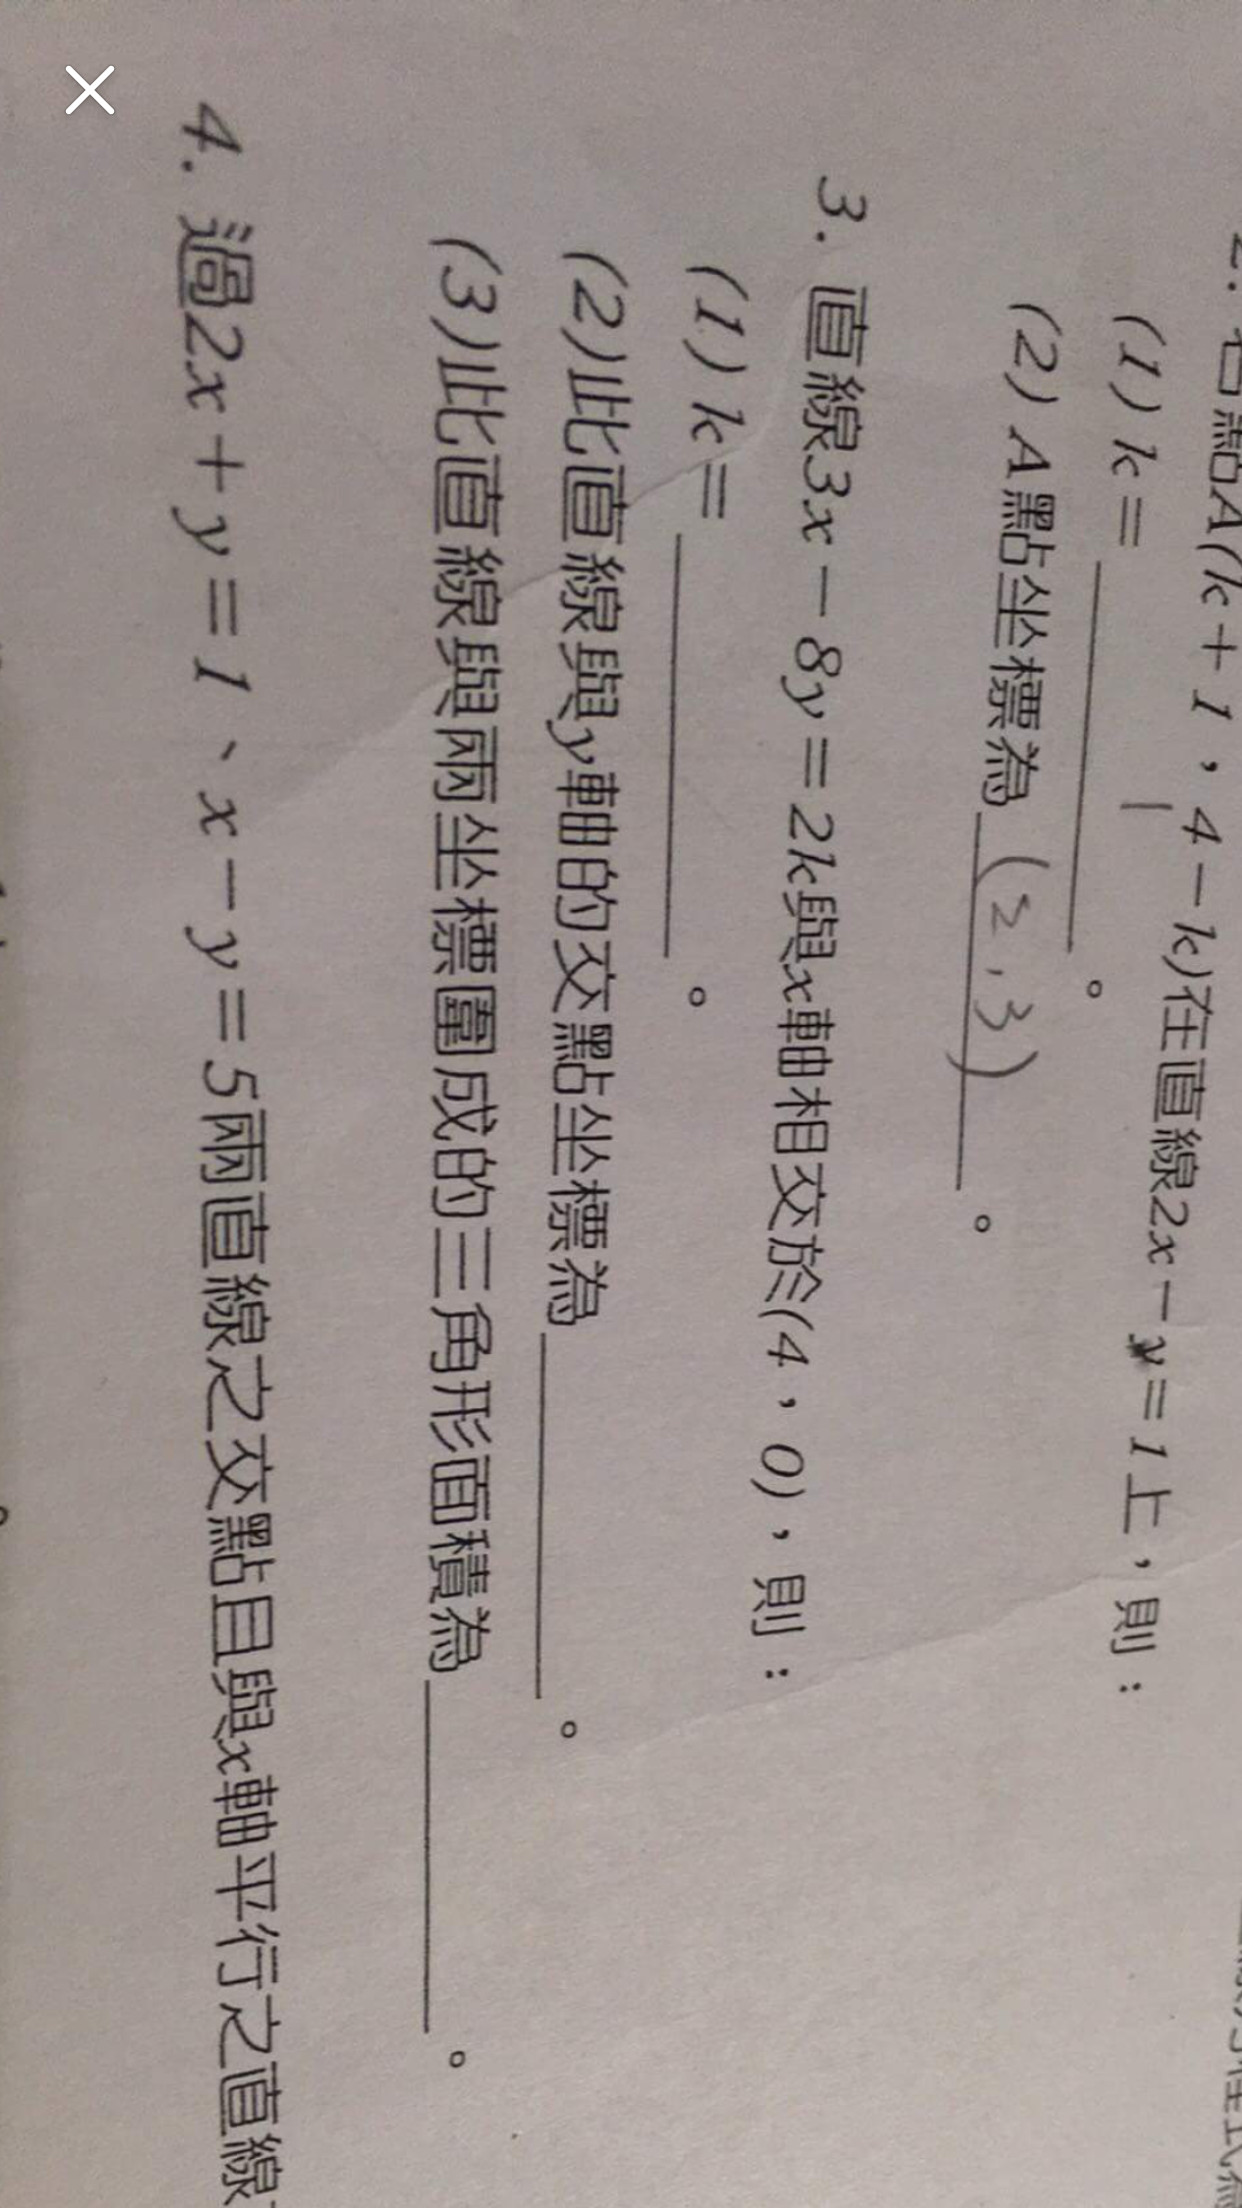 2. 若點A(k+1，4-k)在直線2x-y=1上，則：
(1) k=
1
。
(2) A點坐標為 (2,3) 。
3. 直線3x-8y=2k與x軸相交於(4，0)，則：
(1) k= 。
(2)此直線與y軸的交點坐標為 。
(3)此直線與兩坐標圍成的三角形面積為 。
4. 過2x+y=1、x-y=5兩直線之交點且與x軸平行之直線